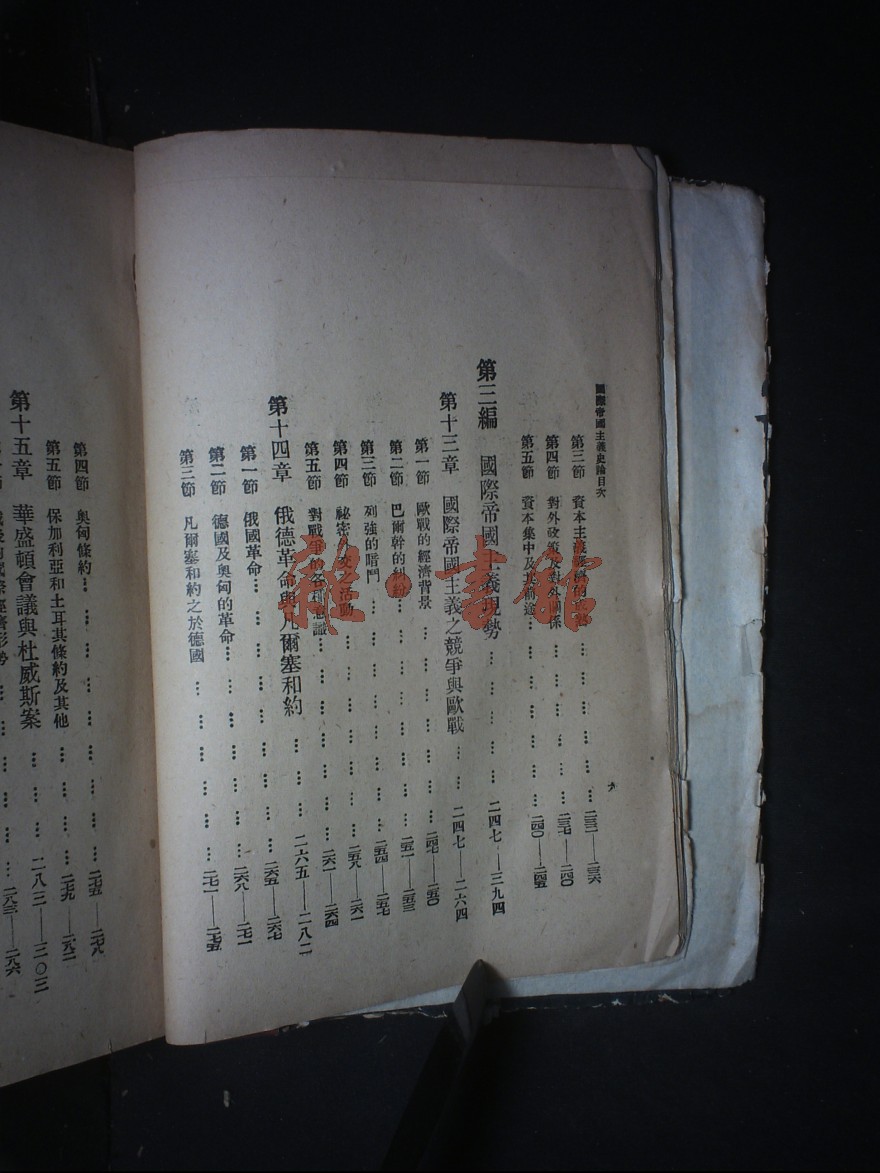 國際帝國主義史論目次
第三節 資本主義 二三二——二三六
第四節 對外政策及對外關係 二三七——二四〇
第五節 資本集中及其前途 二四〇——二四五
第三編 國際帝國主義現勢 二四七——三九四
第十三章 國際帝國主義之競爭與歐戰 二四七——二六四
第一節 歐戰的經濟背景 二四七——二五〇
第二節 巴爾幹的糾紛 二五一——二五三
第三節 列強的暗鬥 二五四——二五七
第四節 秘密外交之活動 二五八——二六一
第五節 對戰爭的各種意識 二六一——二六四
第十四章 俄德革命與凡爾塞和約 二六五——二八二
第一節 俄國革命 二六五——二六七
第二節 德國及奧匈的革命 二六八——二七一
第三節 凡爾塞和約之於德國 二七一——二七五
第四節 奧匈條約 二七五——二七八
第五節 保加利亞和土耳其條約及其他 二七九——二八二
第十五章 華盛頓會議與杜威斯案 二八三——三〇三
二八三——二八六
雜·書館